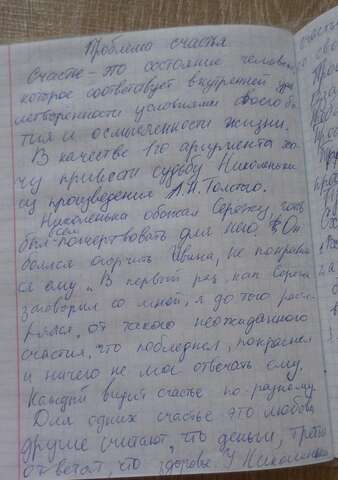 Проблема счастья
Счастье - это состояние человека,
которое соответствует внутренней удов
летворённости условиями своего бы
тия и осмысленности жизни.
В качестве 1го аргумента хо-
чу привести судьбу Николеньки
из произведения Л.Н. Толстого.
Николенька обожал Сережу, готов
был всем пожертвовать для него. Он
боялся огорчить Ивина, не понравит
ся ему. „В первый раз, как Сережа
заговорил со мной, я до того расте
рялся, от такого неожиданного
счастья, что побледнел, покраснел
и ничего не мог отвечать ему.
Каждый видит счастье по-разному.
Для одних счастье это любовь,
другие считают, что деньги, третьи
ответят, что здоровье. У Николеньки